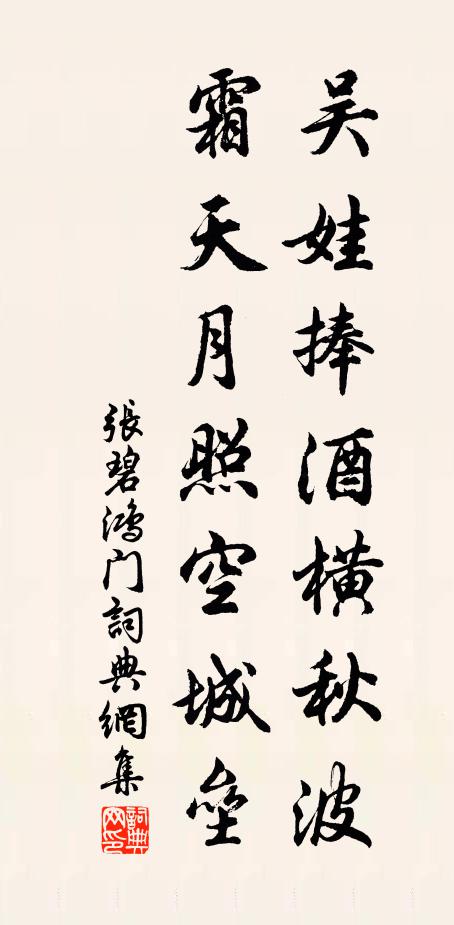 吴娃捧酒横秋波
霜天月照空城壘
張碧鴻门詞典網集
詞典网印